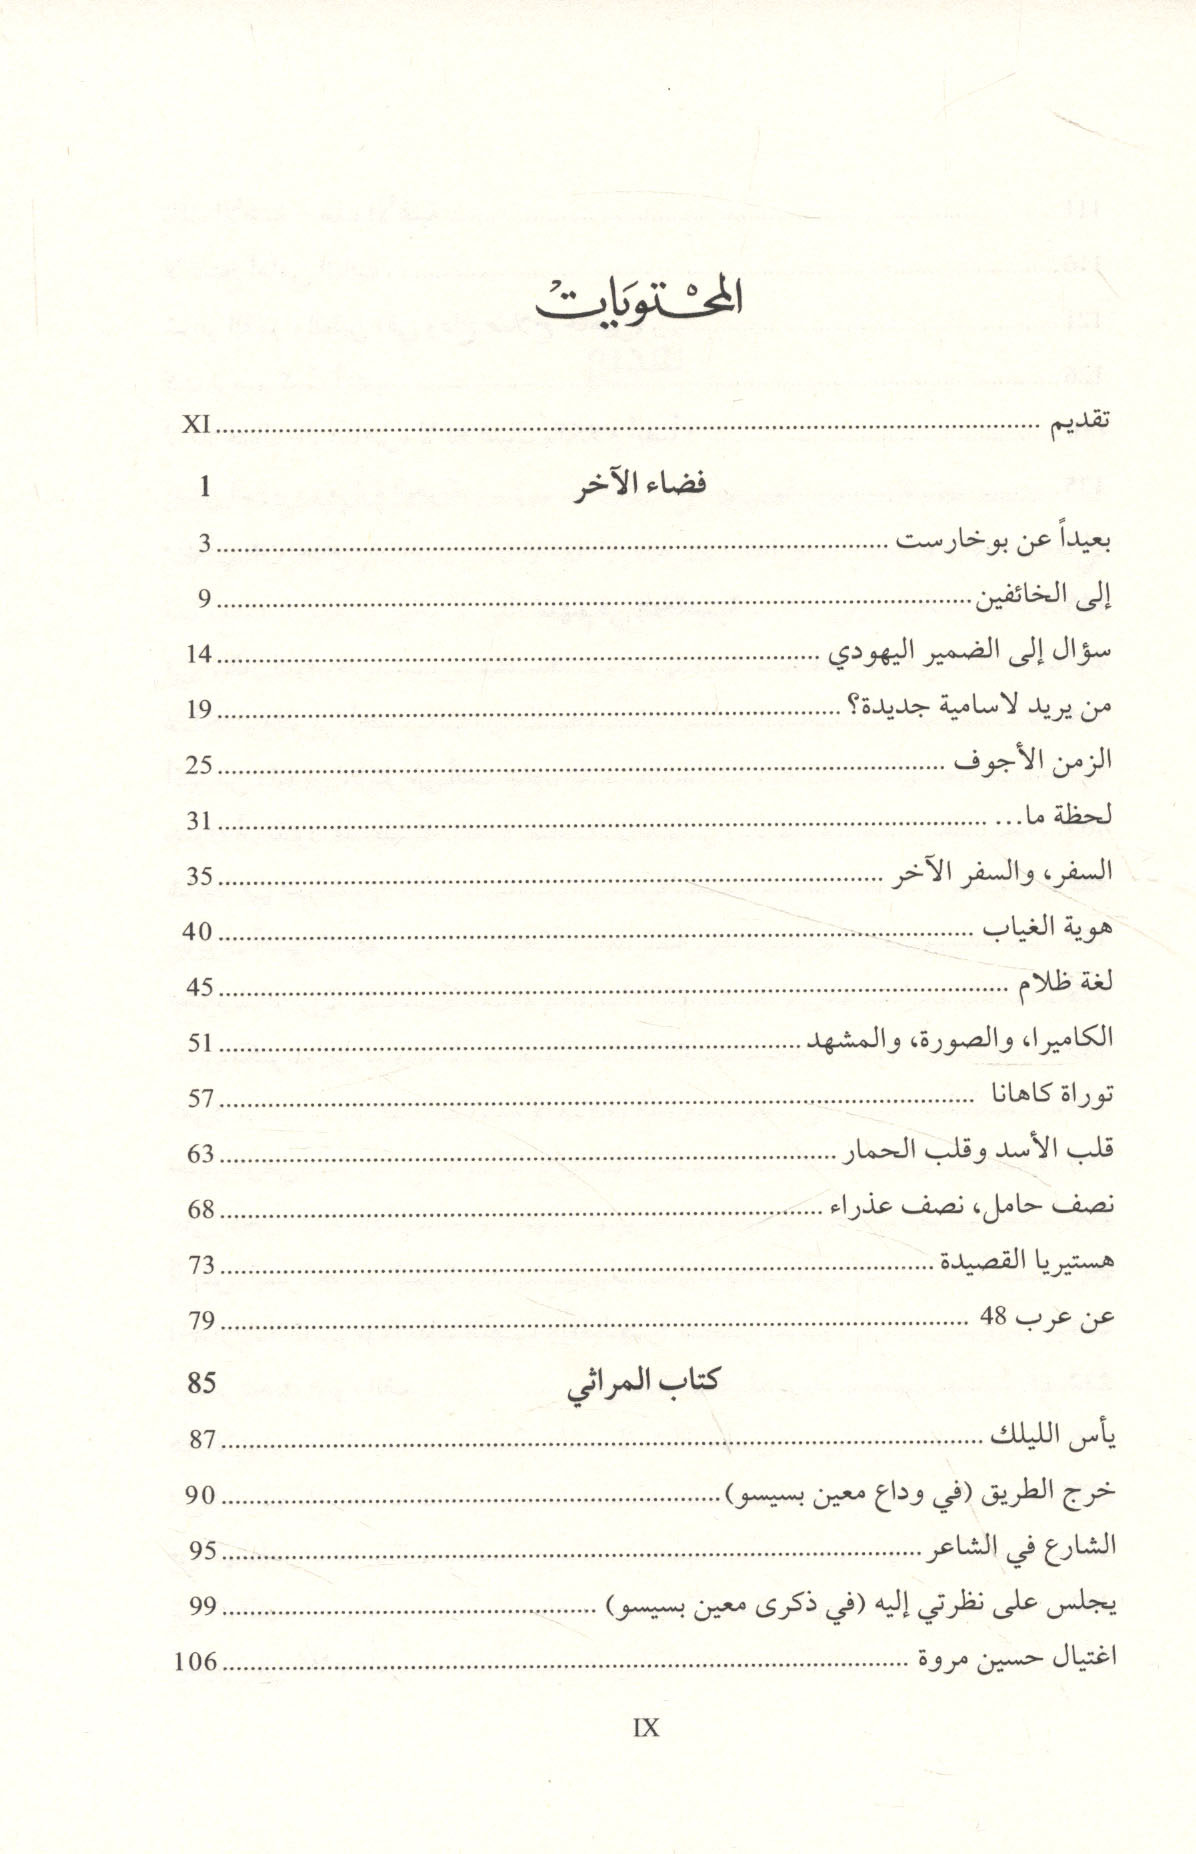 المحتويات
تقديم ........ XI
فضاء الآخر 1
بعيداً عن بوخارست ........ 3
إلى الخائفين ........ 9
سؤال إلى الضمير اليهودي ........ 14
من يريد لاسامية جديدة؟ ........ 19
الزمن الأجوف ........ 25
لحظة ما... ........ 31
السفر، والسفر الآخر ........ 35
هوية الغياب ........ 40
لغة ظلام ........ 45
الكاميرا، والصورة، والمشهد ........ 51
توراة كاهانا ........ 57
قلب الأسد وقلب الحمار ........ 63
نصف حامل، نصف عذراء ........ 68
هستيريا القصيدة ........ 73
عن عرب 48 ........ 79
كتاب المراثي 85
يأس الليلك ........ 87
خرج الطريق (في وداع معين بسيسو) ........ 90
الشارع في الشاعر ........ 95
يجلس على نظرتي إليه (في ذكرى معين بسيسو) ........ 99
اغتيال حسين مروة ........ 106
IX